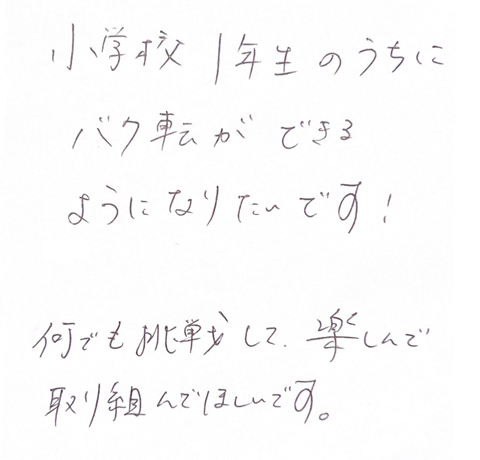 小学校1年生のうちに
バク転ができる
ようになりたいです!
何でも挑戦して、楽しんで
取り組んでほしいです。